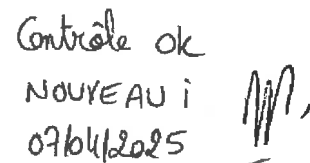 Contrôle ok
NOUVEAU i
07/04/2025